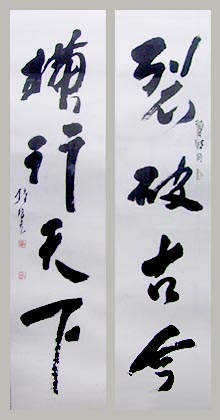 裂破古今
橫行天下